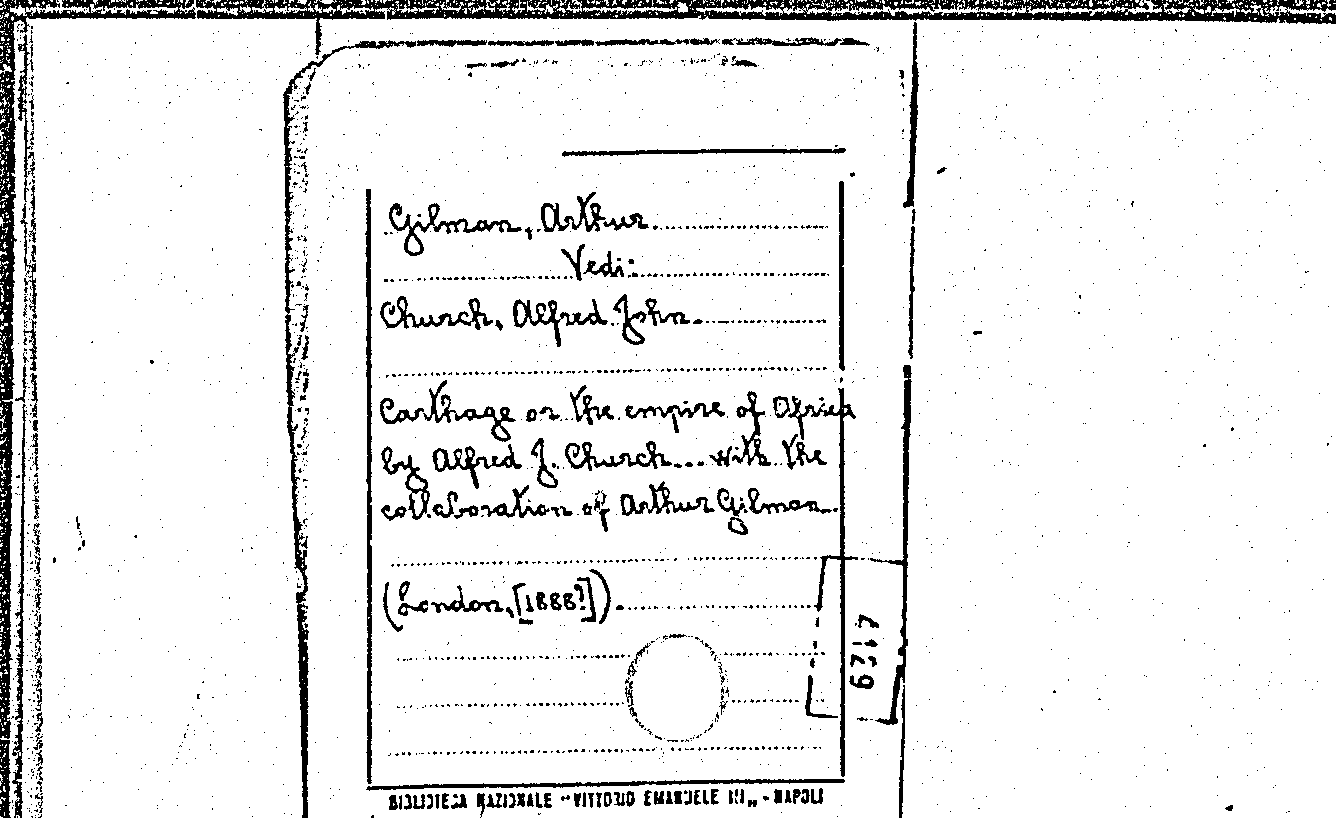 Gilman, Arthur.
Vedi:
Church, Alfred John.
Carthage or the empire of Africa
by Alfred J. Church... with the
collaboration of Arthur Gilman..
(London, [1888?]).
4129
BIBLIOTECA NAZIONALE "VITTORIO EMANUELE III„ - NAPOLI